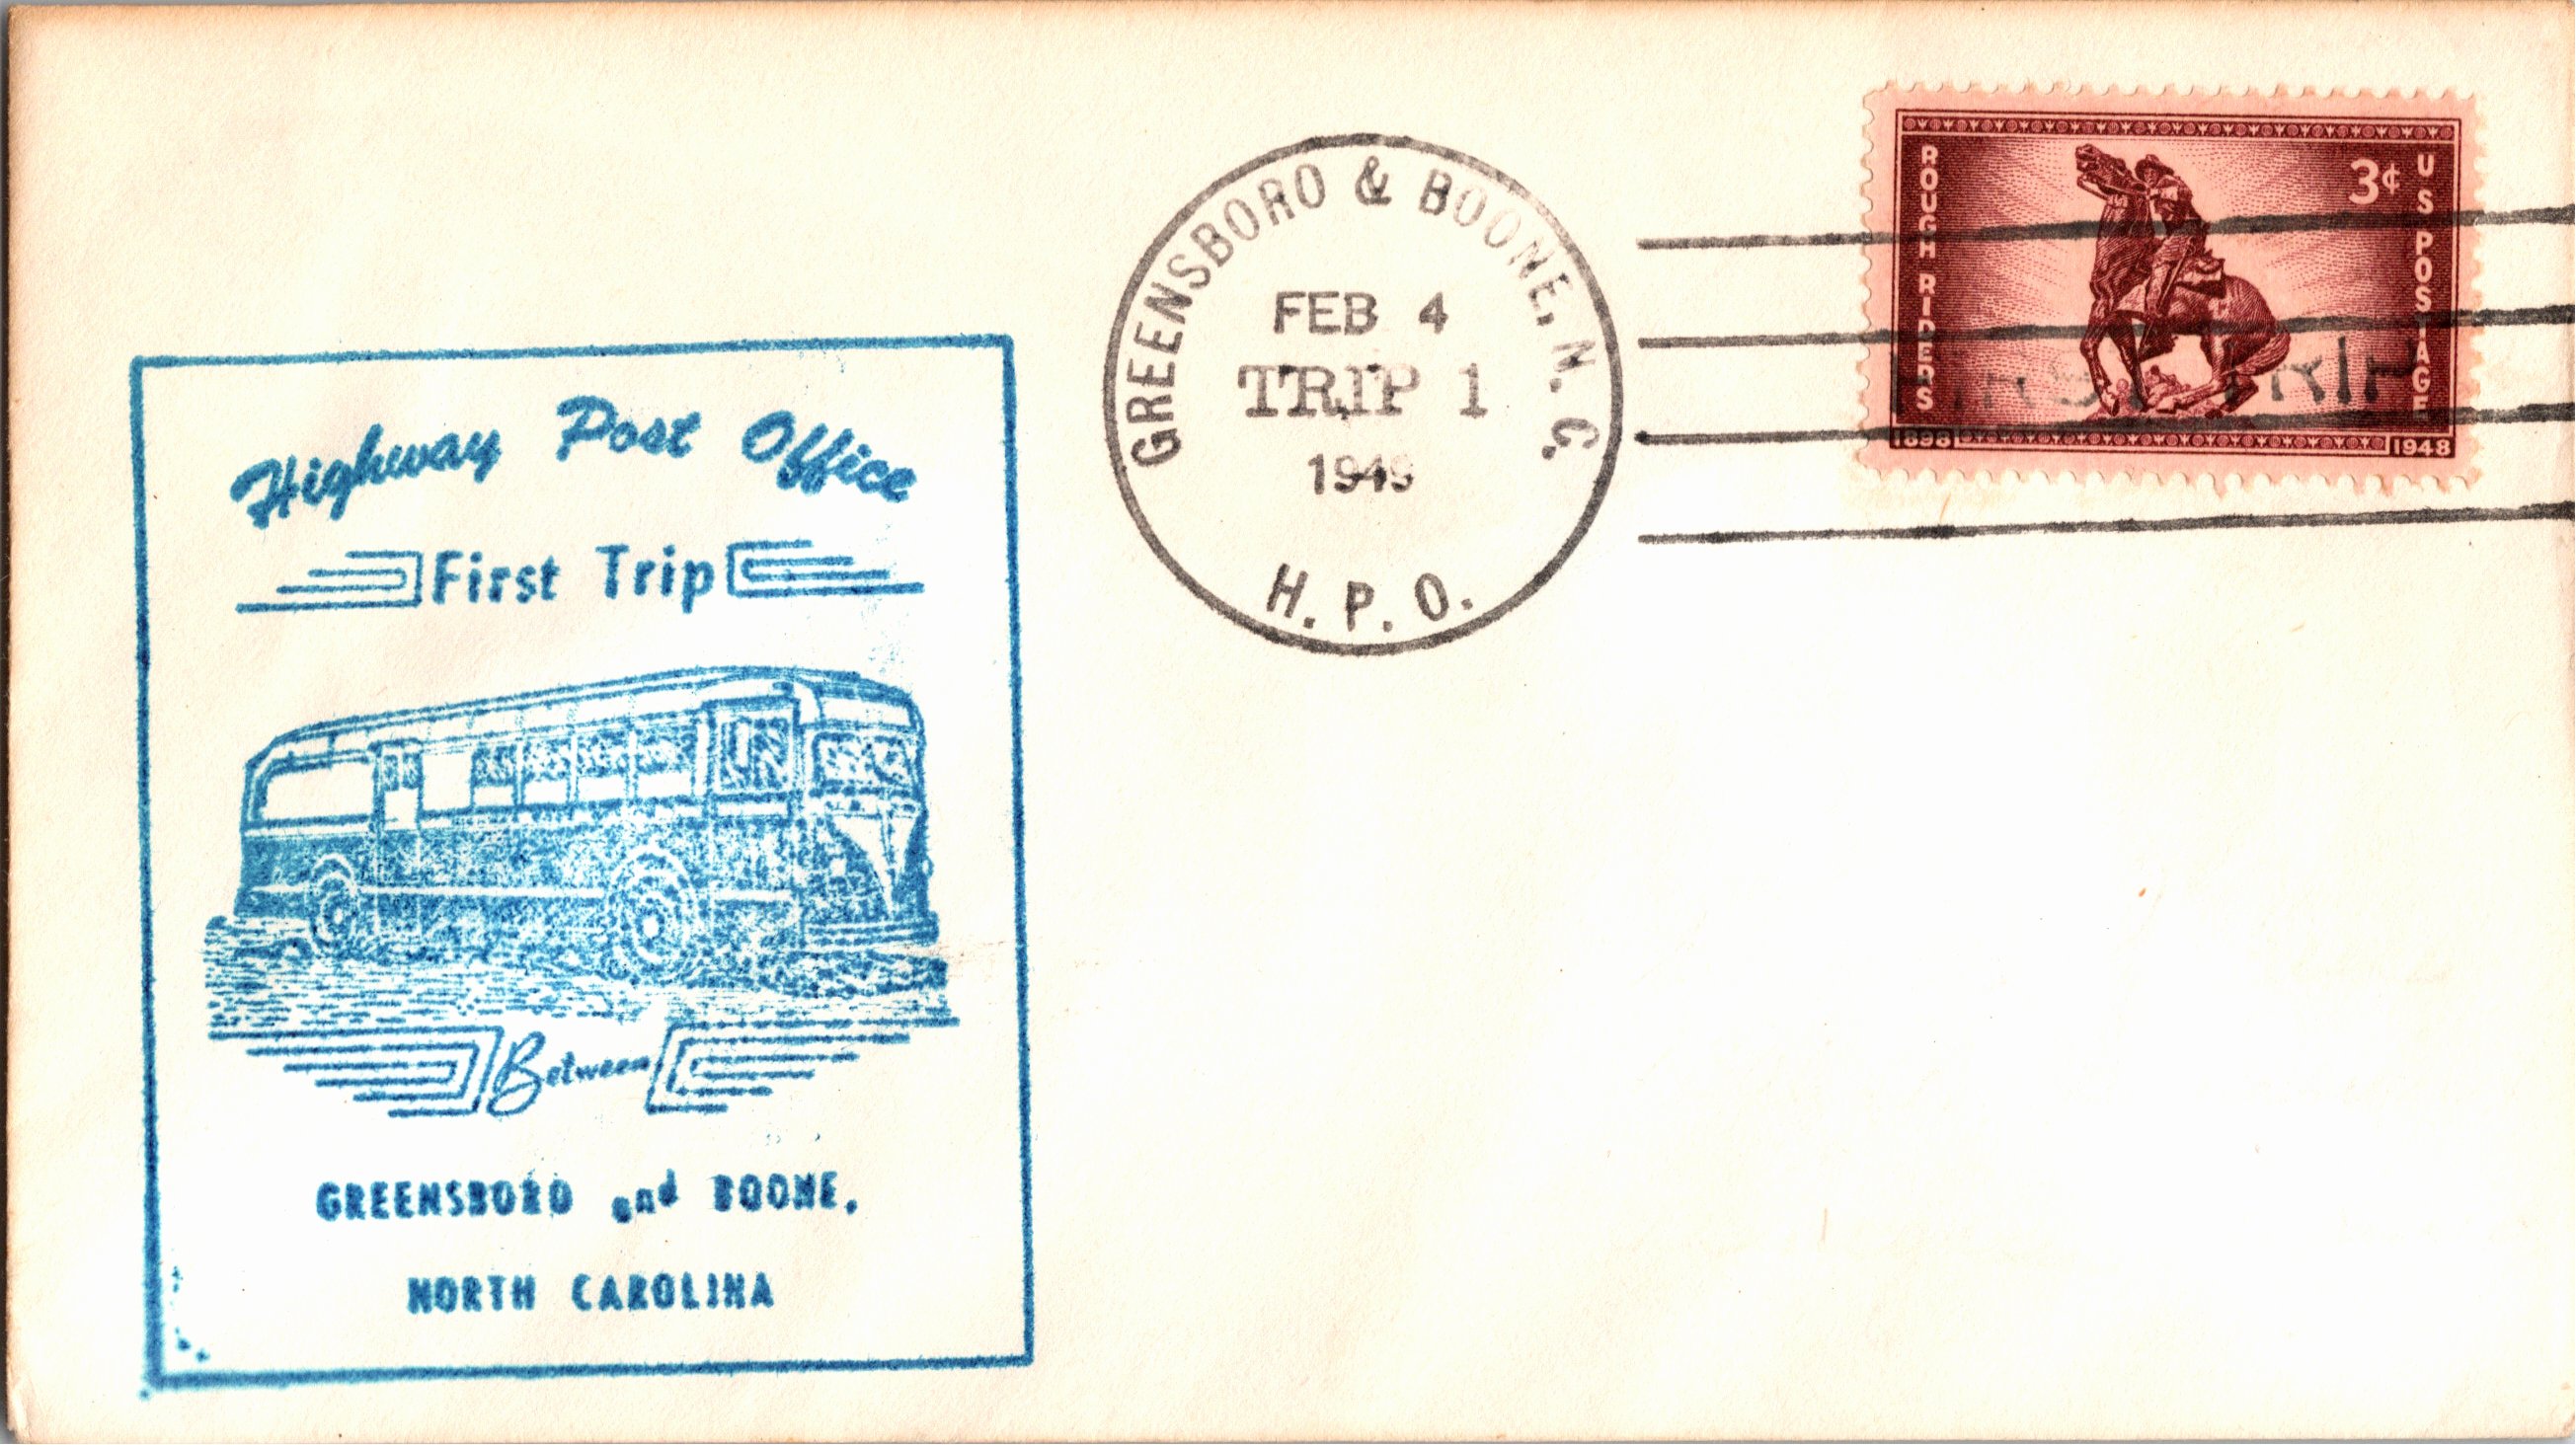 Highway Post Office
First Trip
Between
GREENSBORO and BOONE,
NORTH CAROLINA
GREENSBORO & BOONE, N. C.
FEB 4
TRIP 1
1949
H. P. O.
ROUGH RIDERS
3¢
U S POSTAGE
FIRST TRIP
1898
1948